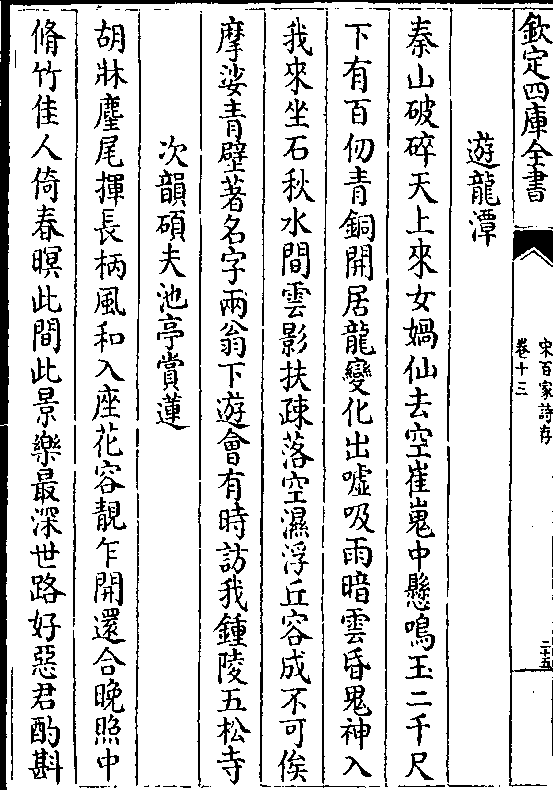 欽定四庫全書
宋百家詩存
卷十三
二十五
遊龍潭
秦山破碎天上來女媧仙去空崔嵬中懸鳴玉二千尺
下有百仞青銅開居龍變化出嘘吸雨暗雲昏鬼神入
我來坐石秋水間雲影扶疎落空濕浮丘容成不可俟
摩娑青壁著名字兩翁下遊會有時訪我鍾陵五松寺
次韻碩夫池亭賞蓮
胡牀麈尾揮長柄風和入座花容靚乍開還合晚照中
脩竹佳人倚春暝此間此景樂最深世路好惡君酌斟